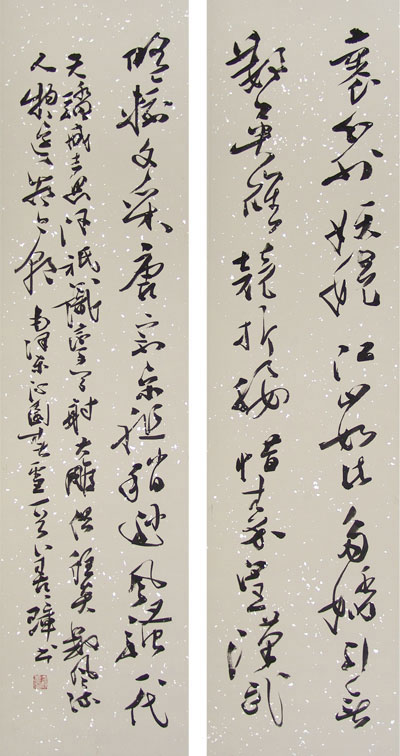 裹分外妖嬈江山如此多嬌引無
數英雄競折腰惜秦皇漢武
略輸文采唐宗宋祖稍遜風騷一代
天驕成吉思汗祇識彎弓射大雕俱往矣數風流
人物還看今朝 毛澤東沁園春雪一首 璋書